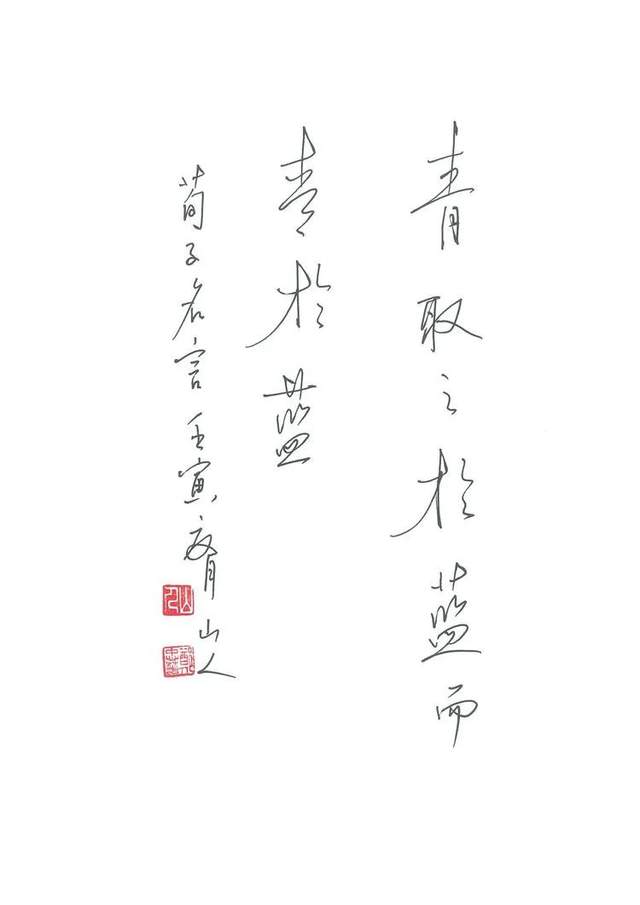 青取之於藍而
青於藍
荀子名言壬寅 山人
山人